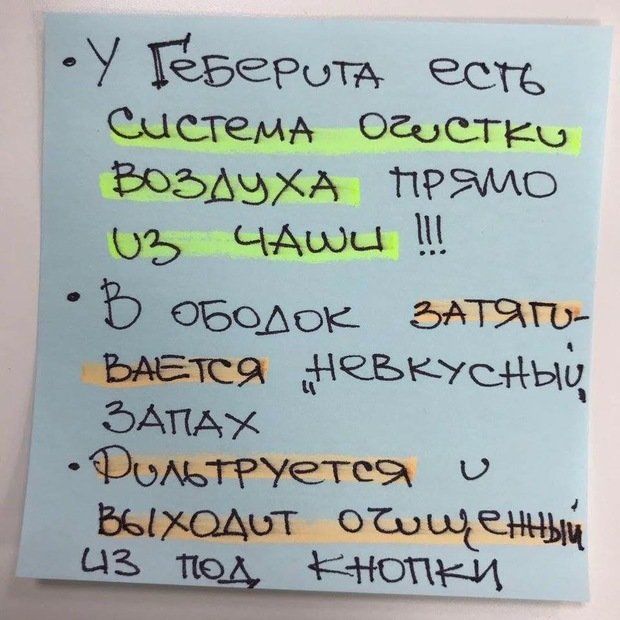 • У Геберита есть
система очистки
воздуха прямо
из чаши !!!
• В ободок затяги-
вается „невкусный"
запах
• Фильтруется и
выходит очищенный
из под кнопки